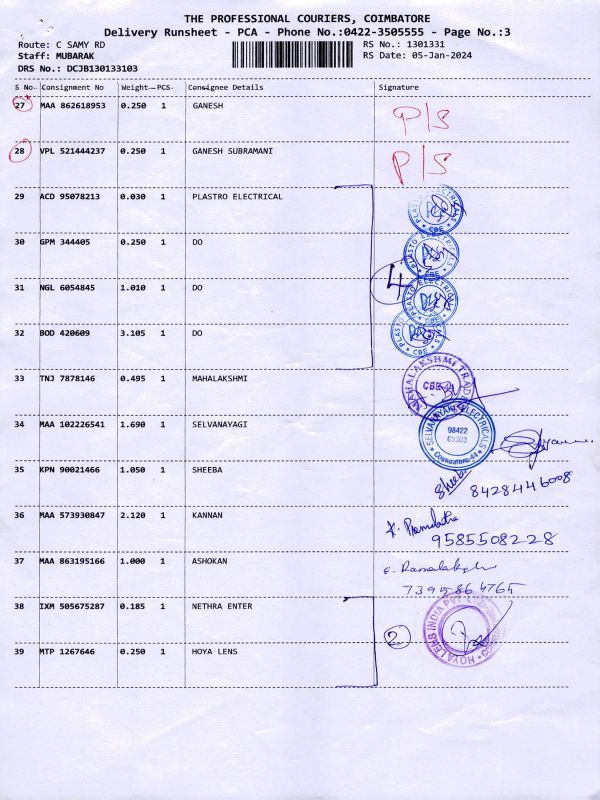 THE PROFESSIONAL COURIERS, COIMBATORE
Delivery Runsheet - PCA - Phone No.:0422-3505555 - Page No.:3
Route: C SAMY RD RS No.: 1301331
Staff: MUBARAK RS Date: 05-Jan-2024
DRS No.: DCJB130133103
S No- Consignment No Weight--PCS- Consignee Details Signature
27 MAA 862618953 0.250 1 GANESH P/S
28 VPL 521444237 0.250 1 GANESH SUBRAMANI P/S
29 ACD 95078213 0.030 1 PLASTRO ELECTRICAL
30 GPM 344405 0.250 1 DO
31 NGL 6054845 1.010 1 DO 4
32 BOD 420609 3.105 1 DO
CBE
33 TNJ 7878146 0.495 1 MAHALAKSHMI
MAHALAKSHMI TRAD
CBE
34 MAA 102226541 1.690 1 SELVANAYAGI
SELVANAYAKI ELECTRICALS
98422
Coimbatore-44
35 KPN 90021466 1.050 1 SHEEBA Sheeba
8428446008
36 MAA 573930847 2.120 1 KANNAN
9585508228
37 MAA 863195166 1.000 1 ASHOKAN
38 IXM 505675287 0.185 1 NETHRA ENTER
2
HOYA LENS INDIA PVT
39 MTP 1267646 0.250 1 HOYA LENS